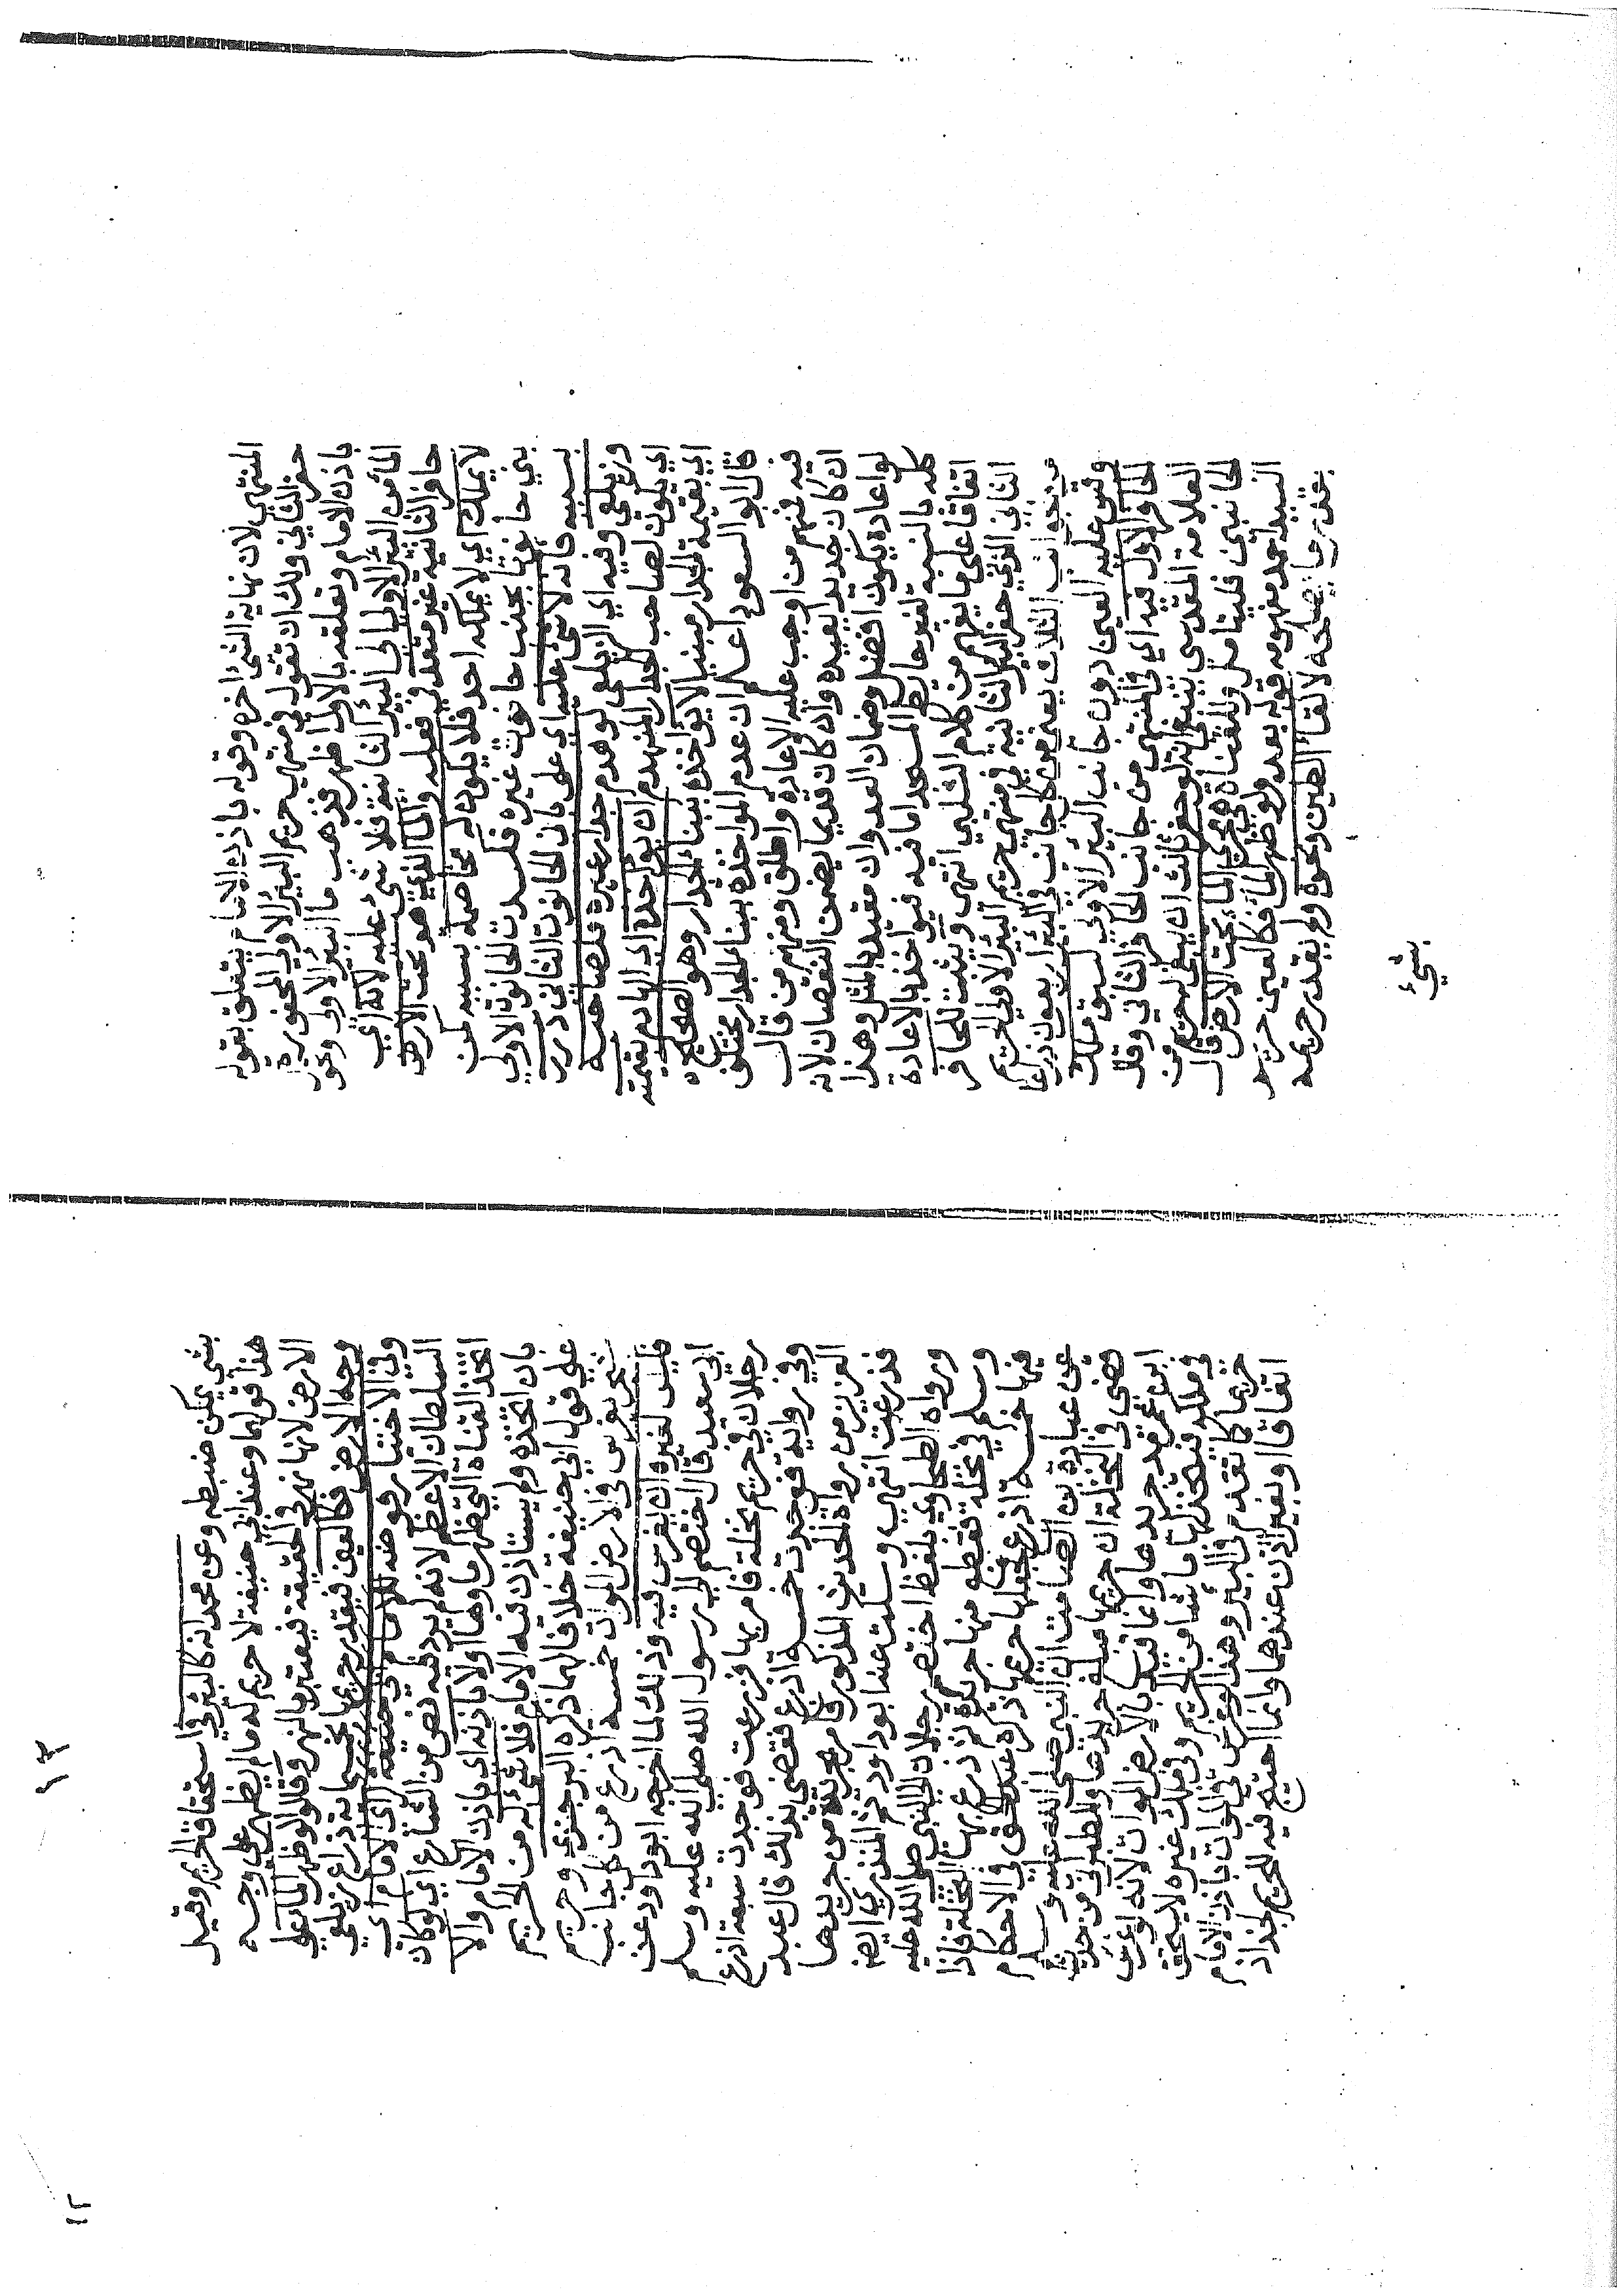 المنتهي لان نهاية الشئ اخره وقوله باذن الامام يتعلق بقوله
حفر الثاني ولك ان تقول في منتهي حريم البئر الاولي المحفورة
باذن الامام وتعلقه بالاول اظهر فذهب ما البئر الاولى وتحو
الماء من البئر الاولي الى البئر الثانية فلا شئ عليه لانه اي
حافر الثانية غير متعد في فعله والماء الذي هو تحت الارض
لا يملك اي لا يملكه احد فلا يكون له مخاصمة بسببه كمن
بني حانوتا بجنب حانوت غيره فكسدت الحانوت الاولي
بسببه فانه لا شئ عليه اي على بان الحانوت الثاني درر
وزيلعي وفيه اي الزيلعي لو هدم جدار غيره فلصاحبه
اي يكون لصاحب الجدار المنهدم ان يواخذه اي الهادم بقيمته
اي بقيمة الجدار مبنيا لا يواخذه ببناء الجدار وهو الصحيح
قال ابو السعود اعلم ان عدم المواخذه ببناء الجدار مختلف
فيه فمنهم من اوجب عليه الاعادة واطلق ومنهم من قال
ان كان جديدا يعيده وان كان قديما يضمن النقصان لانه
لو اعاده يكون افضل وضمان العدوان مقيد بالمثل وهذا
كله بالنسبه لغير حايط المسجد اما فيه فيواخذ بالاعادة
اتفاقا على ما يفهم من كلام الشلبي انتهى ويثبت للحافر
الثاني الذي حفر البئر الثانية في منتهي حريم البئر الاولي الحريم
من الجوانب الثلاث يعني من كل جانب في البئر اربعون ذراعا
وقس عليه العين دون جانب البئر الاولي لسبق ملك
الحافر الاول فيه اي في المنتهي من جانب الحافر الثاني وقال
العلامة المقدسي ينبغي انه لو حفر ثالث ان يبقى له حريم من
الجانبين فليتامل وللقناة هي مجرى الماء تحت الارض قال
السيد احمد مفهومه قوله بعد ولو ظهر الماء فكالعين حريم
بقدر ما يصلحه لالقاء الطين ونحوه ولم يقدر حريمه
بشئ
١٣
بشئ يمكن ضبطه وعن محمد انه كالبئر في استحقاق الحريم وقيل
هذا قولهما وعند ابي حنيفة لا حريم له ما لم يظهر على وجه
الارض لانها نهر في الحقيقة فيعتبر بالنهر وقالوا لو ظهر الماء على
وجه الارض فكالعين فيقدر حريمها بخمسمائة ذراع زيلعي
وفي الاختيار فوضه للامام اي الامام اي
السلطان الاعظم لانه لم يرد فيه نص من الشارع اي لو كان
اتخذ القناة التي ظهر ماوها اولا باذنه اي باذن الامام والا
بان اتخذه ولم يستاذن فيه الامام فلا شئ له من الحريم
على قول ابي حنيفة خلافا لهما ذكره البرجندي وحريم
شجر يغرس في الارض الموات خمسة اذرع من كل جانب
فليس لغيره ان يغرس فيه وذلك لما اخرجه ابو داود عن
ابي سعيد قال اختصم الى رسول الله صلى الله عليه وسلم
رجلان في حريم نخلة فامر بها فزرعت فوجدت سبعة اذرع
وفي رواية فوجدت خمسة اذرع فقضى بذلك قال عبد
العزيز من رواة الحديث المذكور فامر بجريدة من جريدها
فذرعت انتهي وسكت عنه ابو داود ثم المنذري ايضا
ورواه الطحاوي بلفظ اختصم رجلان الى النبي صلى الله عليه
وسلم في نخلة فقطع منها جريدة ثم ذرع بها النخلة فاذا
فيها خمسة اذرع فجعلها حريمها ذكره عبد الحق في الاحكام
عن عبادة بن الصامت ان النبي صلى الله عليه وسلم
قضى في النخلة ان حريمها مبلغ جريدها وللطبراني من حديث
ابن عمر مد جريدها وانما قيد بالارض الموات لانه لو غرس
في ملكه فيتخذ لها ما شاء من الحريم وفي ملك غيره لا يستحق
حريما كما تقدم في البئر وهذا لو غرس في الموات باذن الامام
اتفاقا او بغير اذن عندهما وانما احتيج فيه للحريم لجذاذ
١٢